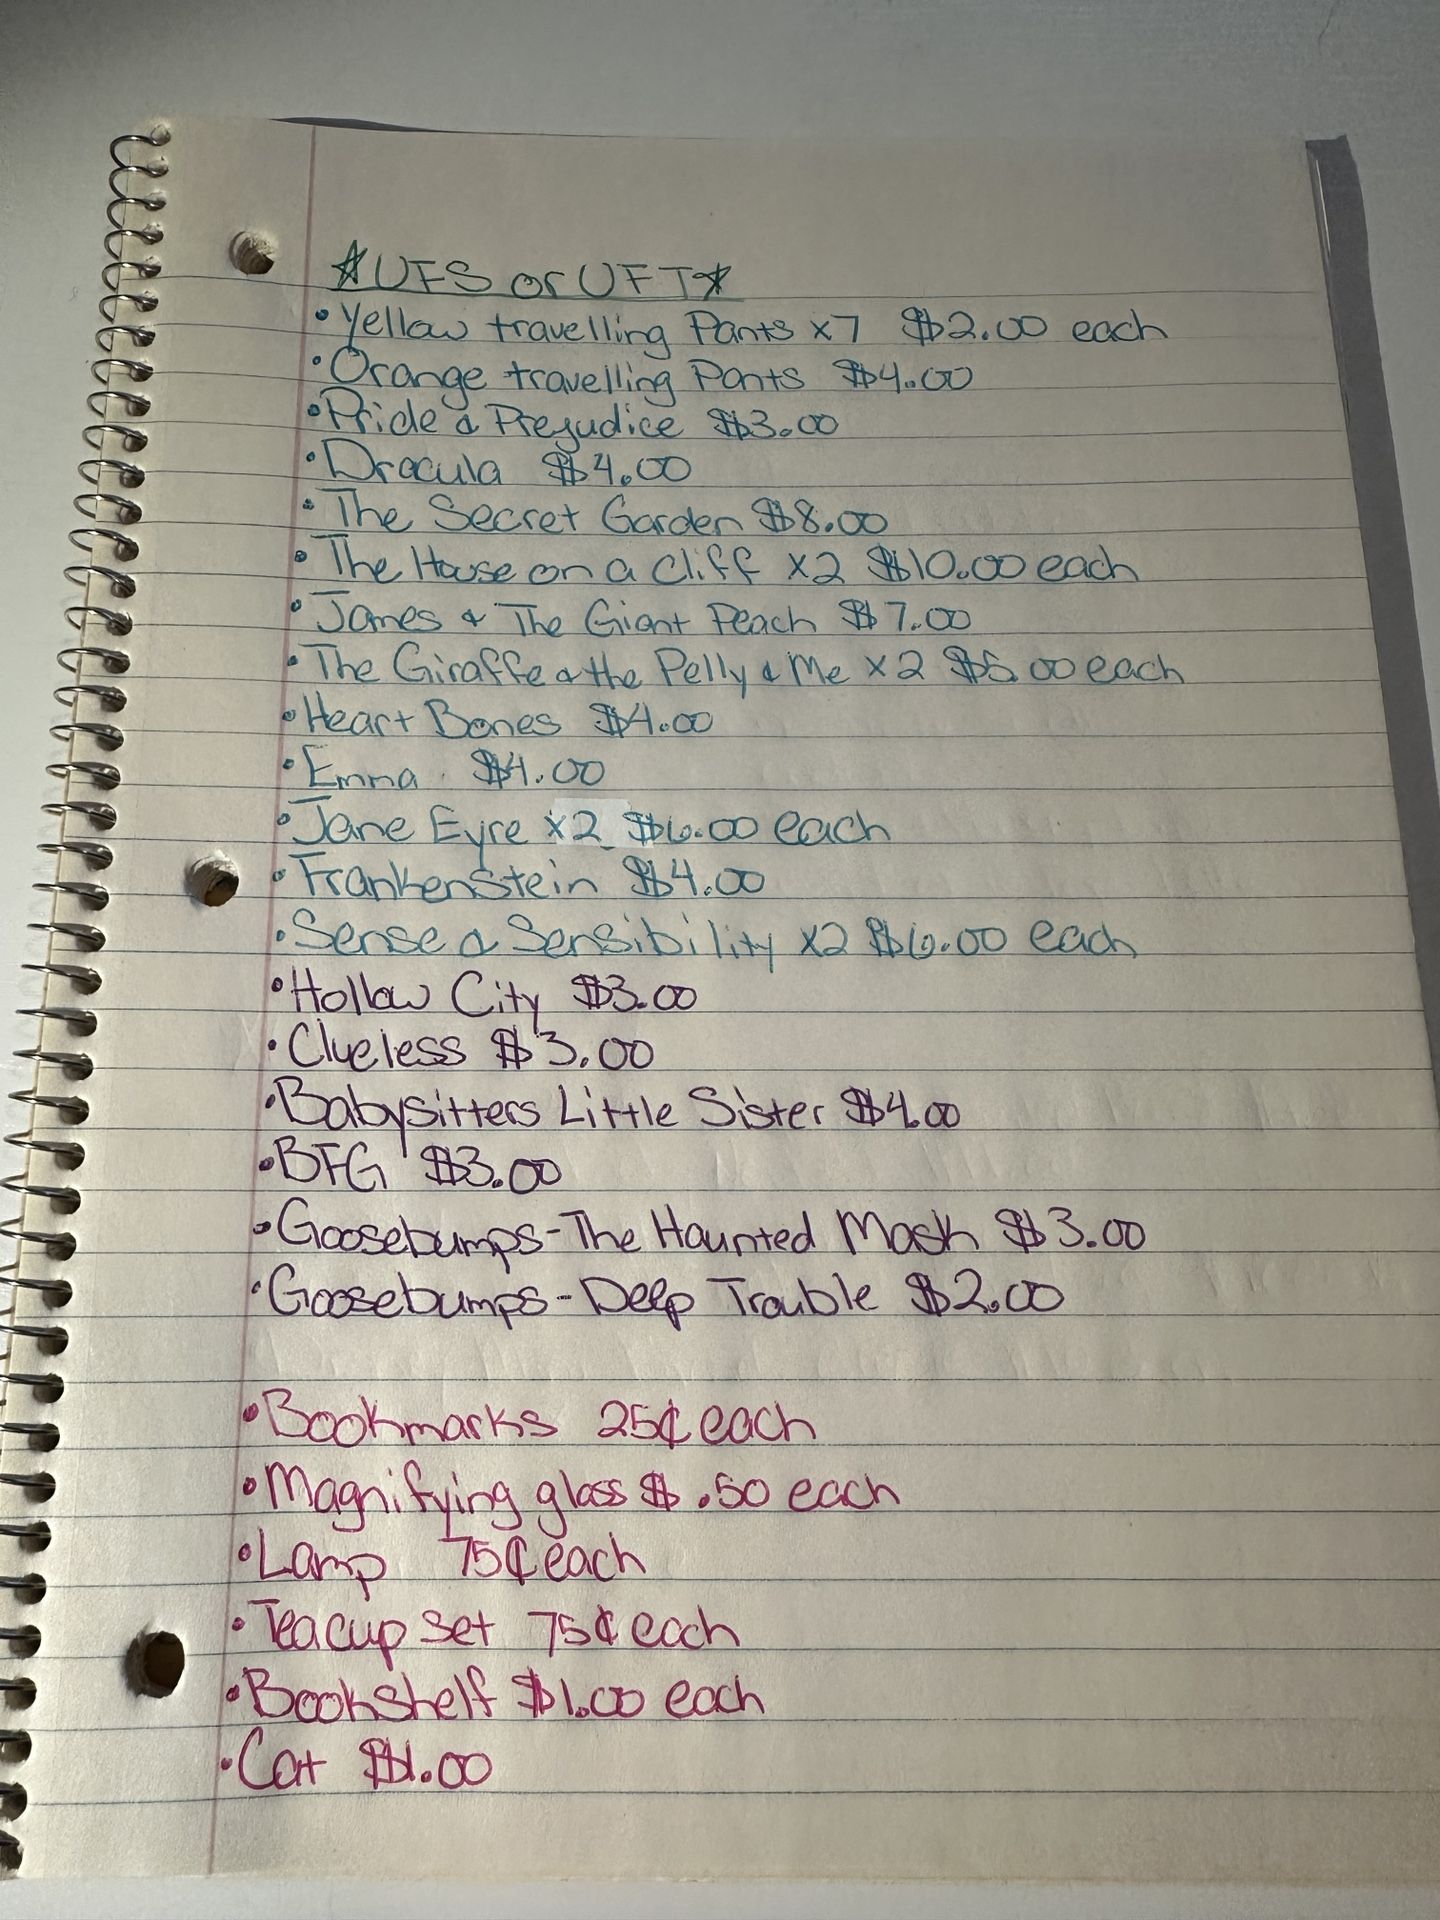 ☆UFS or UFT☆
• Yellow travelling Pants x7 $2.00 each
• Orange travelling Pants $4.00
• Pride & Prejudice $3.00
• Dracula $4.00
• The Secret Garden $8.00
• The House on a Cliff x2 $10.00 each
• James & The Giant Peach $7.00
• The Giraffe & the Pelly & Me x2 $5.00 each
• Heart Bones $4.00
• Emma $4.00
• Jane Eyre x2 $6.00 each
• Frankenstein $4.00
• Sense & Sensibility x2 $6.00 each
• Hollow City $3.00
• Clueless $3.00
• Babysitters Little Sister $4.00
• BFG $3.00
• Goosebumps - The Haunted Mask $3.00
• Goosebumps - Deep Trouble $2.00
• Bookmarks 25¢ each
• Magnifying glass $.50 each
• Lamp 75¢ each
• Teacup set 75¢ each
• Bookshelf $1.00 each
• Cat $1.00